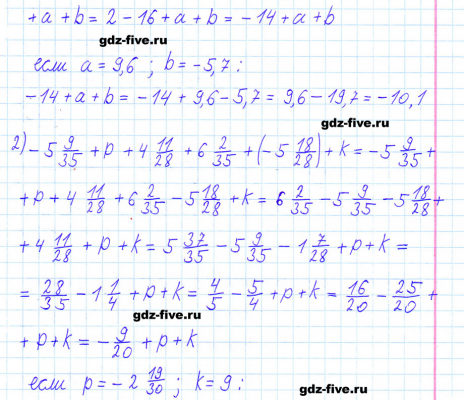 +a+b = 2-16+a+b = -14+a+b
gdz-five.ru
если a = 9,6 ; b = -5,7 :
-14+a+b = -14+9,6-5,7 = 9,6-19,7 = -10,1
gdz-five.ru
2) -5 9/35 + p + 4 11/28 + 6 2/35 + (-5 18/28) + k = -5 9/35 +
+ p + 4 11/28 + 6 2/35 - 5 18/28 + k = 6 2/35 - 5 9/35 - 5 18/28 +
+ 4 11/28 + p + k = 5 37/35 - 5 9/35 - 1 7/28 + p + k =
= 28/35 - 1 1/4 + p + k = 4/5 - 5/4 + p + k = 16/20 - 25/20 +
gdz-five.ru
+ p + k = - 9/20 + p + k
если p = -2 19/30 ; k = 9 :
gdz-five.ru